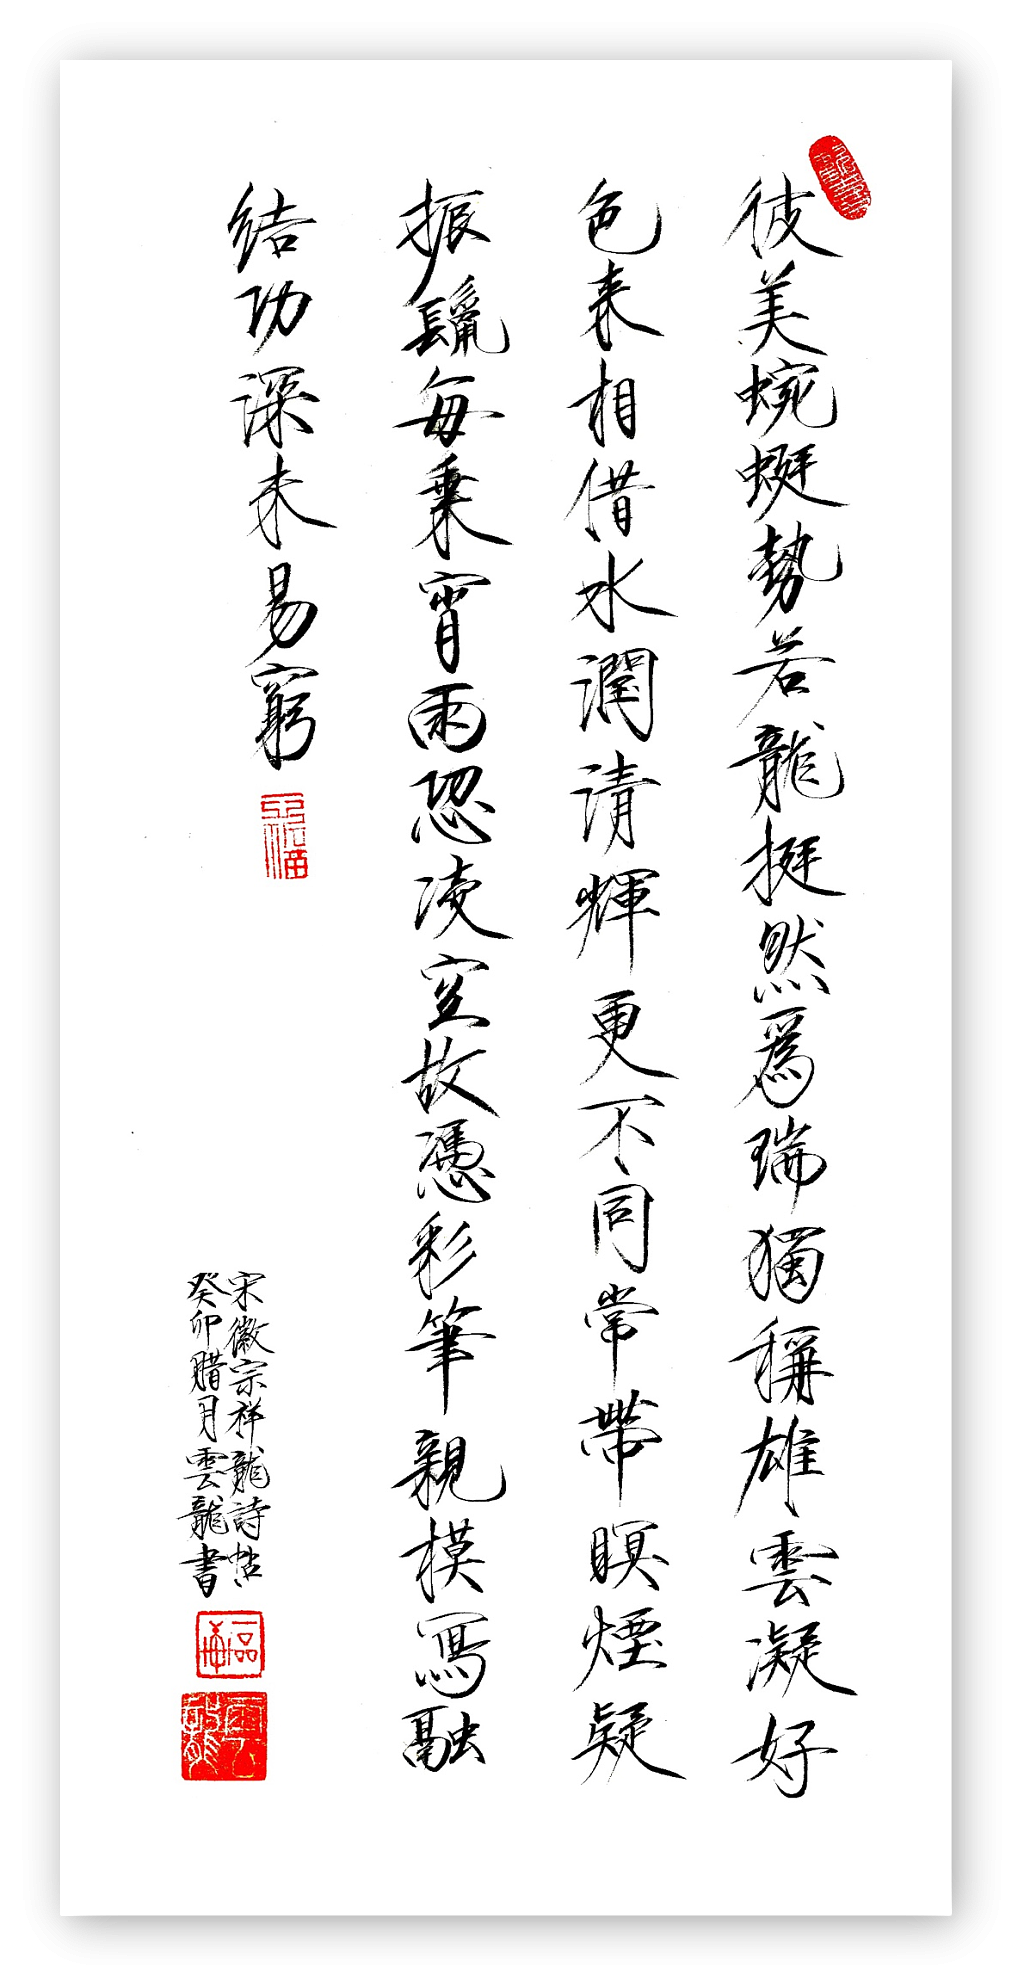 彼美蜿蜒勢若龍挺然爲瑞獨稱雄雲凝好
色来相借水潤清輝更不同常帶瞑煙疑
振鬣每乘宵雨恐凌空故憑彩筆親模寫融
结功深未易窮
宋徽宗祥龍詩帖
癸卯腊月雲龍書
雲龍